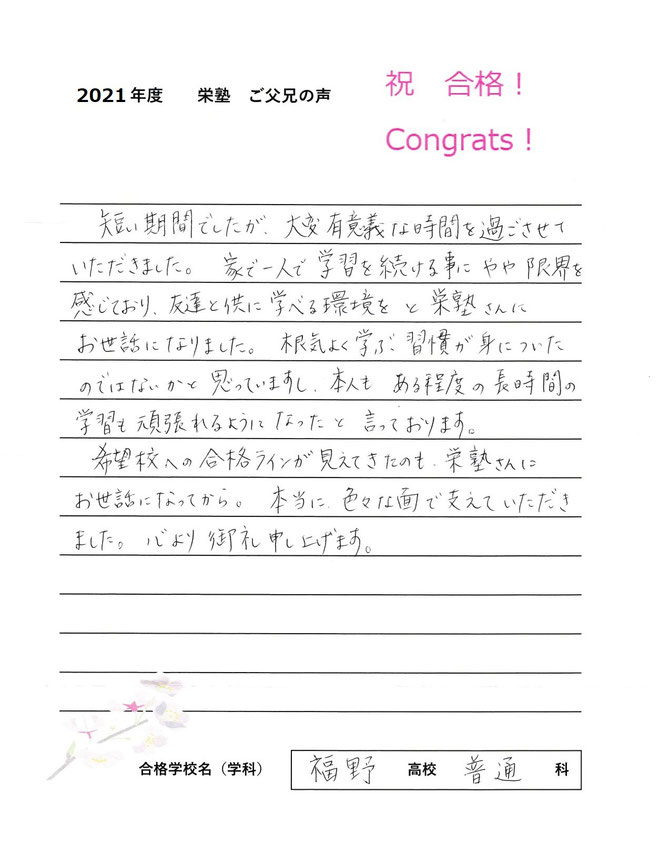 2021年度　　栄塾　ご父兄の声
祝　合格！
Congrats！
短い期間でしたが、大変有意義な時間を過ごさせて
いただきました。 家で一人で学習を続ける事に やや限界を
感じており、友達と供に学べる環境を と 栄塾さんに
お世話になりました。 根気よく学ぶ 習慣が身についた
のではないかと 思っていますし、本人も ある程度の長時間の
学習も頑張れるように なったと 言っております。
希望校への合格ラインが見えてきたのも、栄塾さんに
お世話になってから。 本当に、色々な面で支えていただき
ました。心より御礼申し上げます。
合格学校名（学科）　福野　高校　普通　科